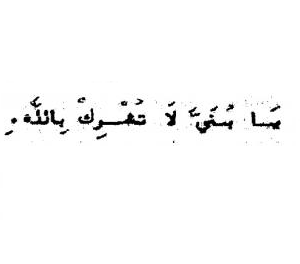 يَا بُنَيَّ لَا تُشْرِكْ بِاللَّهِ